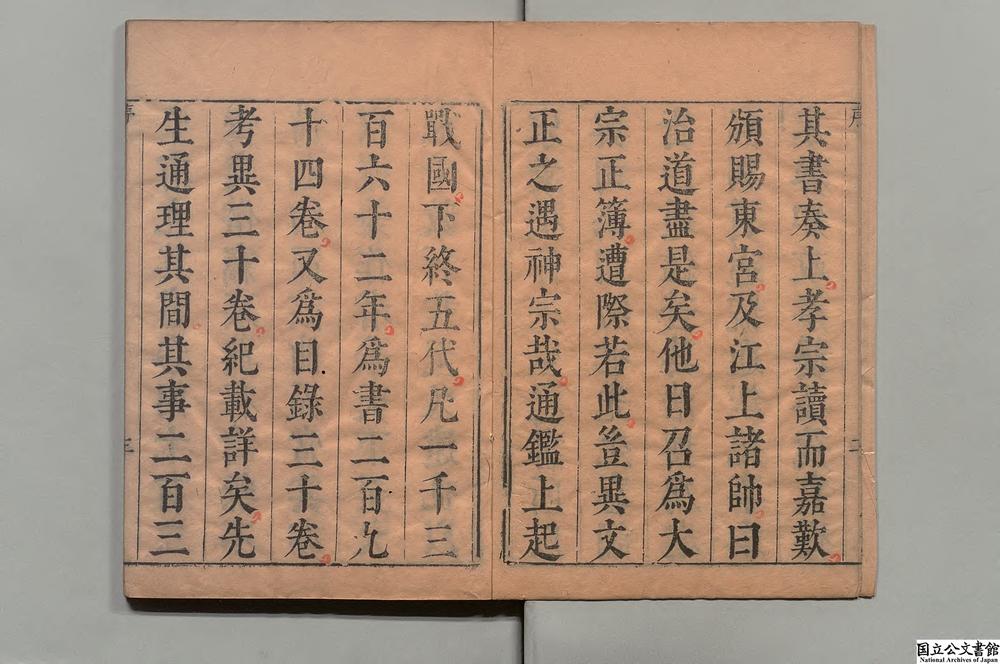 其書奏上孝宗讀而嘉歎
頒賜東宮及江上諸帥曰
治道盡是矣他日召爲大
宗正簿遭際若此豈異文
正之遇神宗哉通鑑上起
戰國下終五代凡一千三
百六十二年爲書二百九
十四卷又爲目錄三十卷
考異三十卷紀載詳矣先
生通理其間其事二百三
国立公文書館
National Archives of Japan